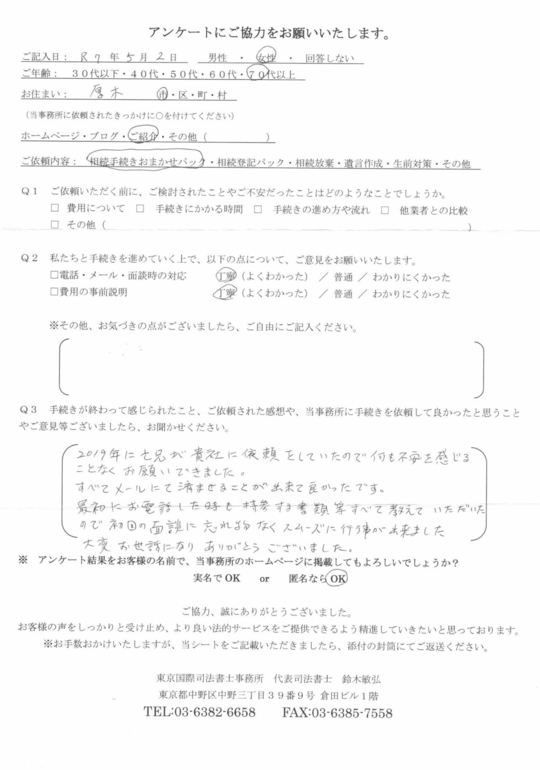 アンケートにご協力をお願いいたします。
ご記入日： R7年5月2日 男性 ・ 女性 ・ 回答しない
ご年齢： 30代以下・40代・50代・60代・70代以上
お住まい： 厚木 市・区・町・村
（当事務所に依頼されたきっかけに○を付けてください）
ホームページ・ブログ・ご紹介・その他（ ）
ご依頼内容： 相続手続きおまかせパック・相続登記パック・相続放棄・遺言作成・生前対策・その他
Q1 ご依頼いただく前に、ご検討されたことやご不安だったことはどのようなことでしょうか。
□ 費用について □ 手続きにかかる時間 □ 手続きの進め方や流れ □ 他業者との比較
□ その他（ ）
Q2 私たちと手続きを進めていく上で、以下の点について、ご意見をお願いいたします。
□電話・メール・面談時の対応 丁寧（よくわかった） ／ 普通 ／ わかりにくかった
□費用の事前説明 丁寧（よくわかった） ／ 普通 ／ わかりにくかった
※その他、お気づきの点がございましたら、ご自由にご記入ください。
Q3 手続きが終わって感じられたこと、ご依頼された感想や、当事務所に手続を依頼して良かったと思うこと
やご意見等ございましたら、お聞かせください。
2019年に七兄が貴社に依頼をしていたので何も不安を感じる
ことなくお願いできました。
すべてメールにて済ませることが出来て良かったです。
最初にお電話した時も持参する書類等すべて教えていただいた
ので初回の面談に忘れ物なくスムーズに行う事が出来ました
大変お世話になりありがとうございました。
※ アンケート結果をお客様の名前で、当事務所のホームページに掲載してもよろしいでしょうか？
実名でOK or 匿名ならOK
ご協力、誠にありがとうございました。
お客様の声をしっかりと受け止め、より良い法的サービスをご提供できるよう精進していきたいと思っております。
※お手数おかけいたしますが、当シートをご記載いただきましたら、添付の封筒にてご返送ください。
東京国際司法書士事務所 代表司法書士 鈴木敏弘
東京都中野区中野三丁目39番9号 倉田ビル1階
TEL:03-6382-6658 FAX:03-6385-7558